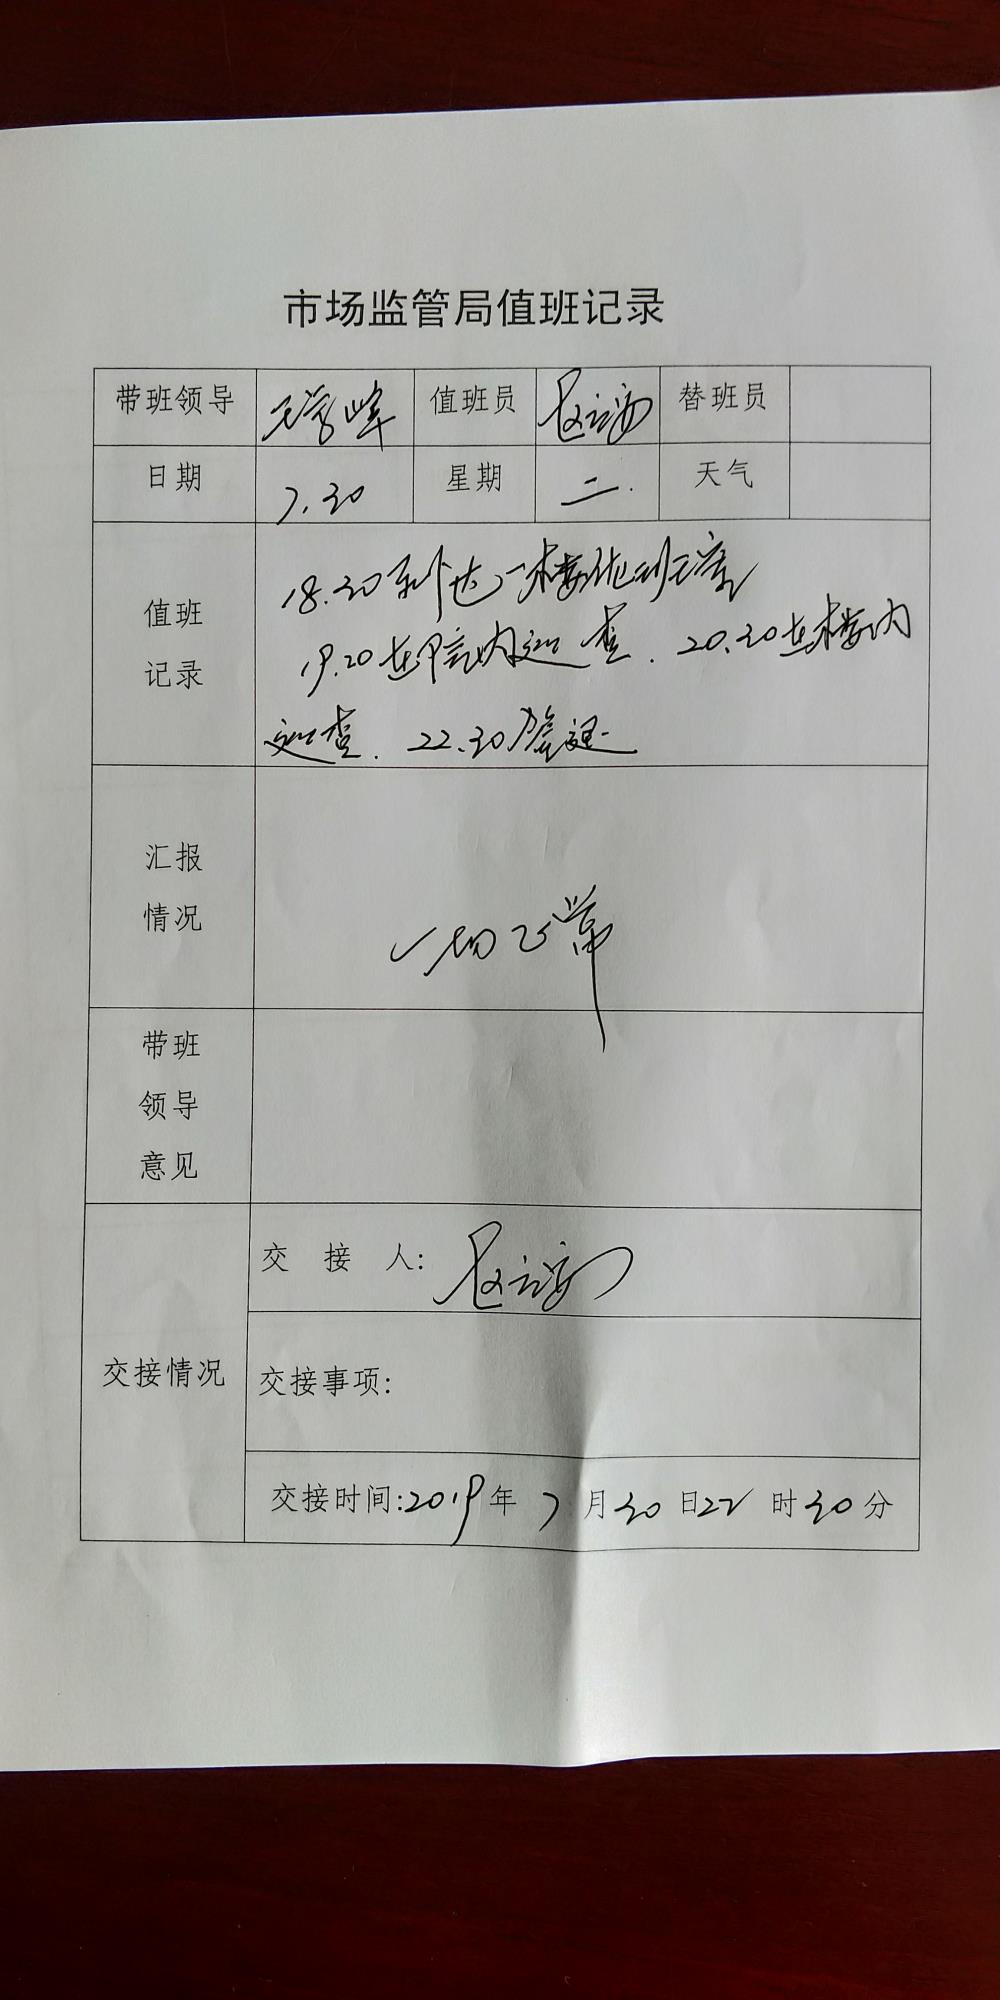 市场监管局值班记录
带班领导 值班员 替班员
日期 7.30 星期 二. 天气
值班
记录
18.30到达一楼值班室
19.20在院内巡查. 20.30在楼内
巡查. 22.30
汇报
情况
一切正常
带班
领导
意见
交接情况
交 接 人:
交接事项:
交接时间:2019年 7月30日22时30分